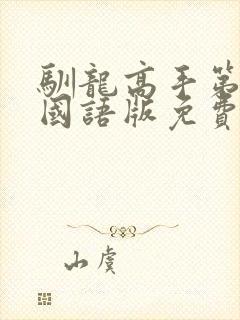 馴龍高手第
國語版免費
山虞